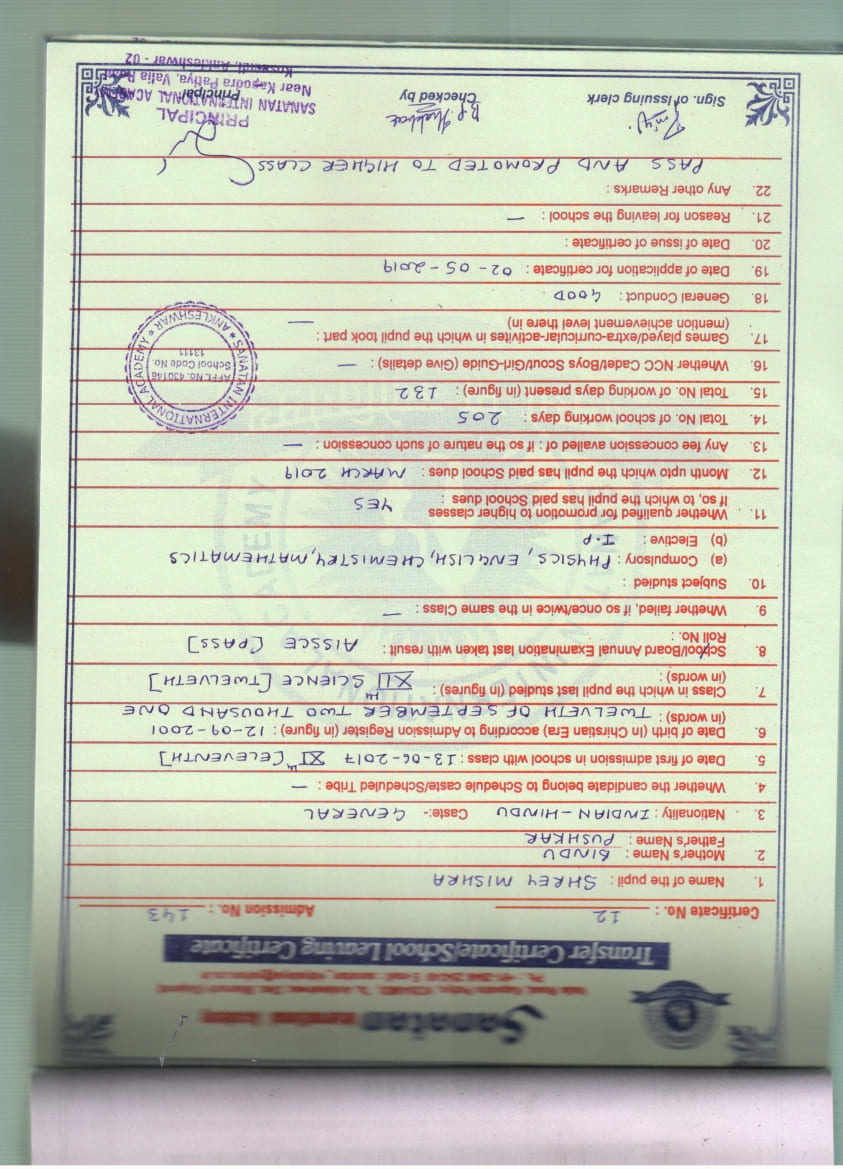 Sanatan International Academy
Transfer Certificate/School Leaving Certificate
Certificate No. : 12 Admission No. : 143
1. Name of the pupil : SHREY MISHRA
2. Mother's Name : BINDU
Father's Name : PUSHKAR
3. Nationality : INDIAN-HINDU Caste:- GENERAL
4. Whether the candidate belong to Schedule caste/Scheduled Tribe : —
5. Date of first admission in school with class : 13-06-2017 XIth [ELEVENTH]
6. Date of birth (In Chirstian Era) according to Admission Register (in figure) : 12-09-2001
(in words) : TWELVETH OF SEPTEMBER TWO THOUSAND ONE
7. Class in which the pupil last studied (in figures) : XIITH SCIENCE [TWELVETH]
(in words) :
8. School/Board Annual Examination last taken with result : AISSCE [PASS]
Roll No. :
9. Whether failed, if so once/twice in the same Class : —
10. Subject studied :
(a) Compulsory : PHYSICS, ENGLISH, CHEMISTRY, MATHEMATICS
(b) Elective : I.P
11. Whether qualified for promotion to higher classes
If so, to which the pupil has paid School dues : YES
12. Month upto which the pupil has paid School dues : MARCH 2019
13. Any fee concession availed of : if so the nature of such concession : —
14. Total No. of school working days : 205
15. Total No. of working days present (in figure) : 132
16. Whether NCC Cadet/Boys Scout/Girl-Guide (Give details) : —
17. Games played/extra-curricular-activites in which the pupil took part :
(mention achievement level there in) —
18. General Conduct : GOOD.
19. Date of application for certificate : 02-05-2019
20. Date of issue of certificate :
21. Reason for leaving the school : —
22. Any other Remarks :
PASS AND PROMOTED TO HIGHER CLASS
SANATAN INTERNATIONAL ACADEMY
ANKLESHWAR
AFFI. No. 430146
School Code No.
13111
Sign. of Issuing clerk Checked by Principal
PRINCIPAL
SANATAN INTERNATIONAL ACADEMY
Near Kapodra Patiya, Valia Road
Kosamdi, Ankleshwar - 02